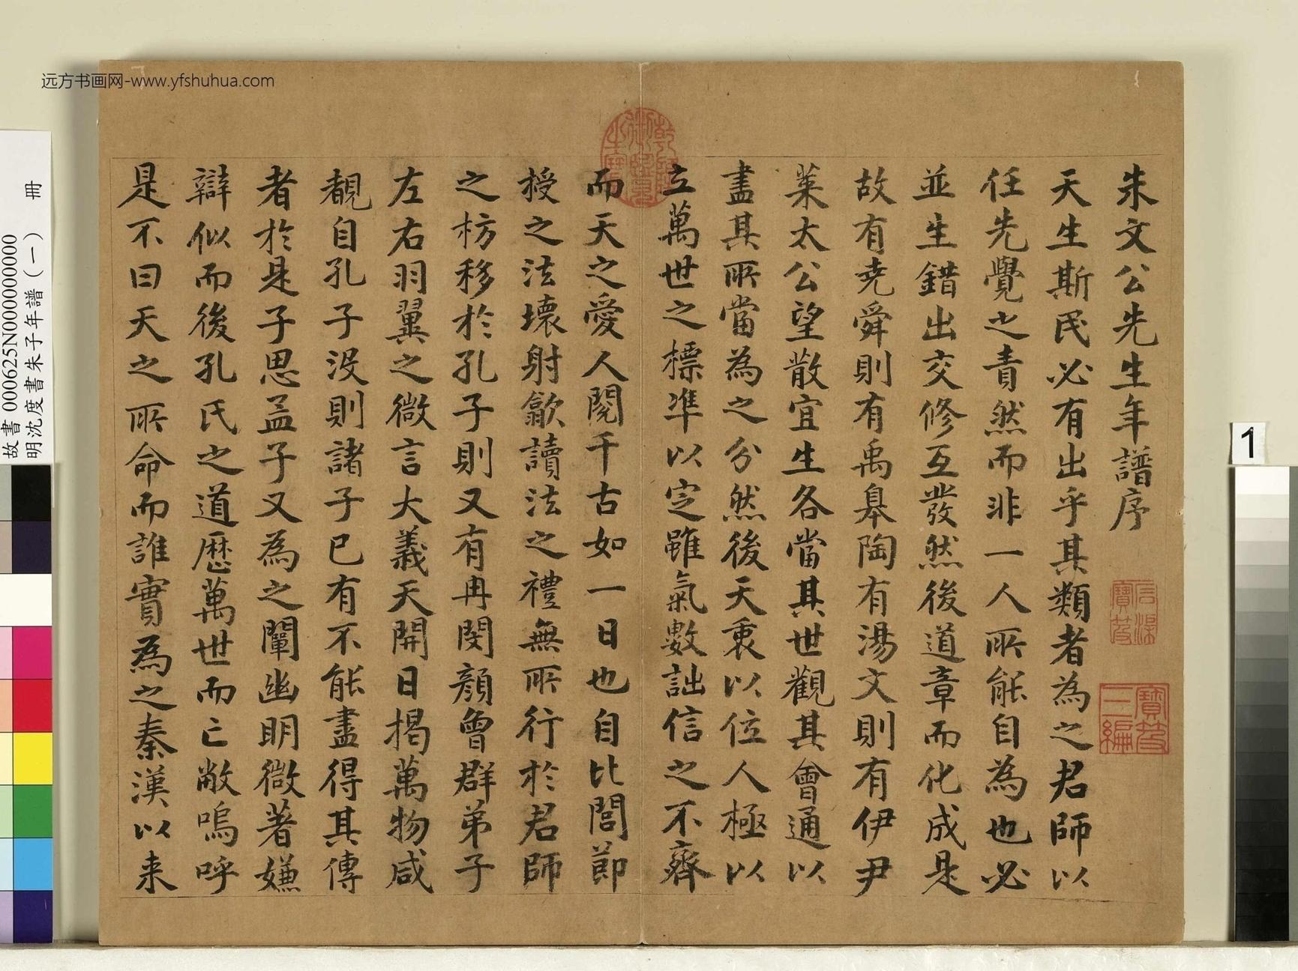 远方书画网-www.yfshuhua.com
朱文公先生年譜序
天生斯民必有出乎其類者為之君師以
任先覺之責然而非一人所能自為也必
並生錯出交修互發然後道章而化成是
故有堯舜則有禹皋陶有湯文則有伊尹
萊太公望散宜生各當其世觀其會通以
盡其所當為之分然後天衷以位人極以
立萬世之標準以定雖氣數詘信之不齊
而天之愛人閱千古如一日也自比閭節
授之法壞射飲讀法之禮無所行於君師
之枋移於孔子則又有冉閔顏曾群弟子
左右羽翼之微言大義天開日揭萬物咸
覩自孔子沒則諸子已有不能盡得其傳
者於是子思孟子又為之闡幽明微著嫌
辯似而後孔氏之道歷萬世而亡敝嗚呼
是不曰天之所命而誰實為之秦漢以来
寶笈三編
故書 000625N000000000
明沈度書朱子年譜(一) 冊
1